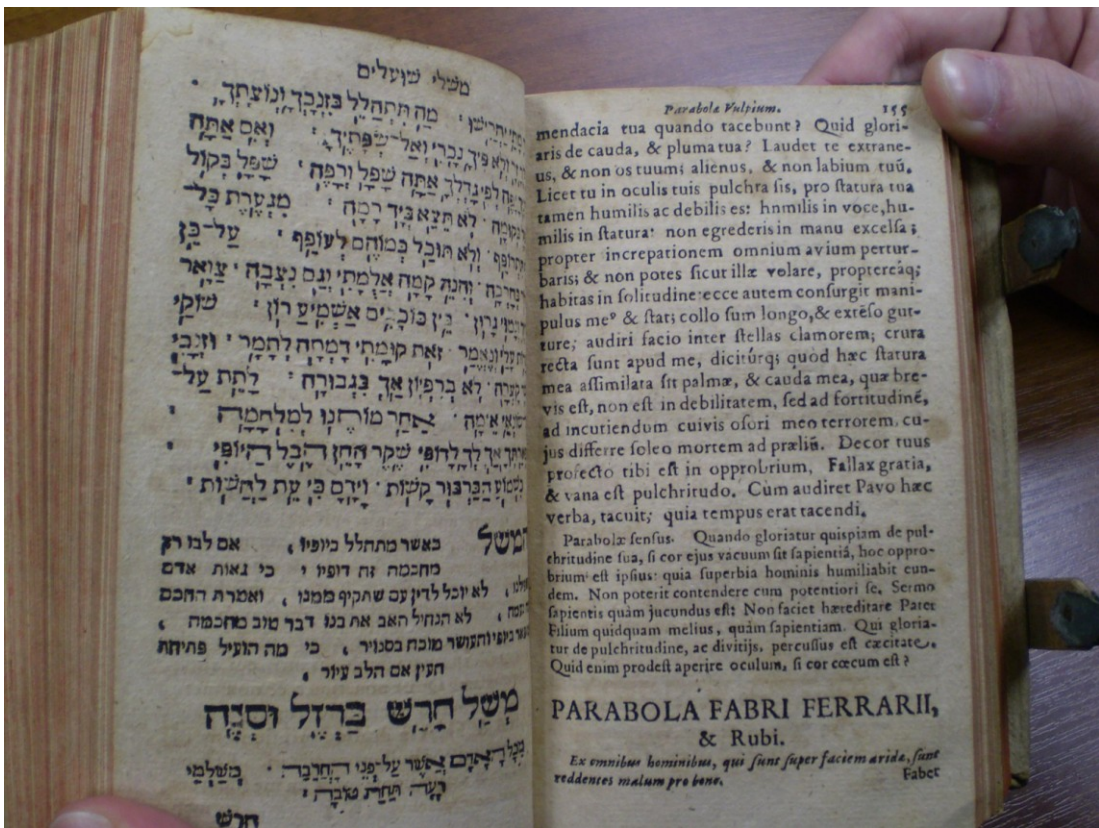 משלי שועלים
מַה תִּתְהַלֵּל בִּזְנָבְךָ וְנוֹצָתְךָ
וְלֹא פִיךָ נָכְרִי וְאַל־שְׂפָתֶיךָ וְאִם אַתָּה
אַתָּה שָׁפָל וְרָפֶה שְׁפַל בְּקוֹל
לֹא תֵצֵא בְּיָד רָמָה מִגַּעֲרַת כָּל־
וְלֹא תוּכַל כְּמוֹהֶם לְעוֹפֵף עַל־כֵּן
וְהִנֵּה קָמָה אֲלֻמָּתִי וְגַם נִצָּבָה צַוָּאר
גָּרוֹן בֵּין כּוֹכָבִים אַשְׁמִיעַ רוֹן שׁוֹקַי
זֹאת קוֹמָתִי דָּמְתָה לְתָמָר וּזְנָבִי
לֹא בְרִפְיוֹן אַךְ בִּגְבוּרָה לָתֵת עַל־
אֵימָה
אַךְ לְךָ לְדוֹפִי שֶׁקֶר הַחֵן הֶבֶל הַיּוֹפִי
וַיִּדֹּם כִּי עֵת לַחֲשׁוֹת
המשל כאשר מתהלל ביופיו אם לבו רק
מחכמת זה דופיו כי גאות אדם
לא יוכל לדין עם שתקיף ממנו ואמרת החכם
לא הנחיל האב את בנו דבר טוב מחכמה
והעושר מוכה בסנויר כי מה הועיל פתיחת
העין אם הלב עיור
מְשַׁל חָרַשׁ בַּרְזֶל וּסְנֶה
מִכָּל הָאָדָם אֲשֶׁר עַל־פְּנֵי הֶחָרָבָה מְשַׁלְּמֵי
רָעָה תַּחַת טוֹבָה
חרש
Parabolæ Vulpium. 155
mendacia tua quando tacebunt? Quid glori-
aris de cauda, & pluma tua? Laudet te extrane-
us, & non os tuum; alienus, & non labium tuū.
Licet tu in oculis tuis pulchra sis, pro statura tua
tamen humilis ac debilis es: hnmilis in voce, hu-
milis in statura: non egrederis in manu excelsa;
propter increpationem omnium avium pertur-
baris; & non potes sicut illæ volare, proptereáq;
habitas in solitudine: ecce autem consurgit mani-
pulus meꝰ & stat; collo sum longo, & extēso gut-
ture; audiri facio inter stellas clamorem; crura
recta sunt apud me, dicitúrq; quòd hæc statura
mea assimilata sit palmæ, & cauda mea, quæ bre-
vis est, non est in debilitatem, sed ad fortitudinē,
ad incutiendum cuivis osori meo terrorem, cu-
jus differre soleo mortem ad præliū. Decor tuus
profecto tibi est in opprobrium, Fallax gratia,
& vana est pulchritudo. Cùm audiret Pavo hæc
verba, tacuit; quia tempus erat tacendi.
Parabolæ sensus. Quando gloriatur quispiam de pul-
chritudine sua, si cor ejus vacuum sit sapientiâ, hoc oppro-
brium est ipsius: quia superbia hominis humiliabit eun-
dem. Non poterit contendere cum potentiori se. Sermo
sapientis quàm jucundus est: Non faciet hæreditare Pater
Filium quidquam melius, quàm sapientiam. Qui gloria-
tur de pulchritudine, ac divitijs, percussus est cæcitate.
Quid enim prodest aperire oculum, si cor cæcum est?
PARABOLA FABRI FERRARII,
& Rubi.
Ex omnibus hominibus, qui sunt super faciem aridæ, sunt
reddentes malum pro bono.
Faber